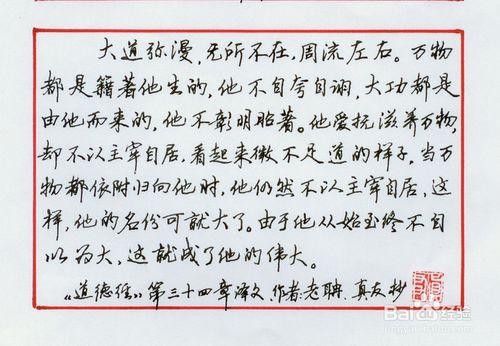 大道弥漫，无所不在，周流左右。万物
都是籍著他生的，他不自夸自诩，大功都是
由他而来的，他不彰明昭著。他爱抚滋养万物，
却不以主宰自居，看起来微不足道的样子，当万
物都依附归向他时，他仍然不以主宰自居，这
样，他的名份可就大了。由于他从始至终不自
以为大，这就成了他的伟大。
《道德经》第三十四章译文 作者：老聃．真友抄
Baidu经验
jingyan.baidu.com